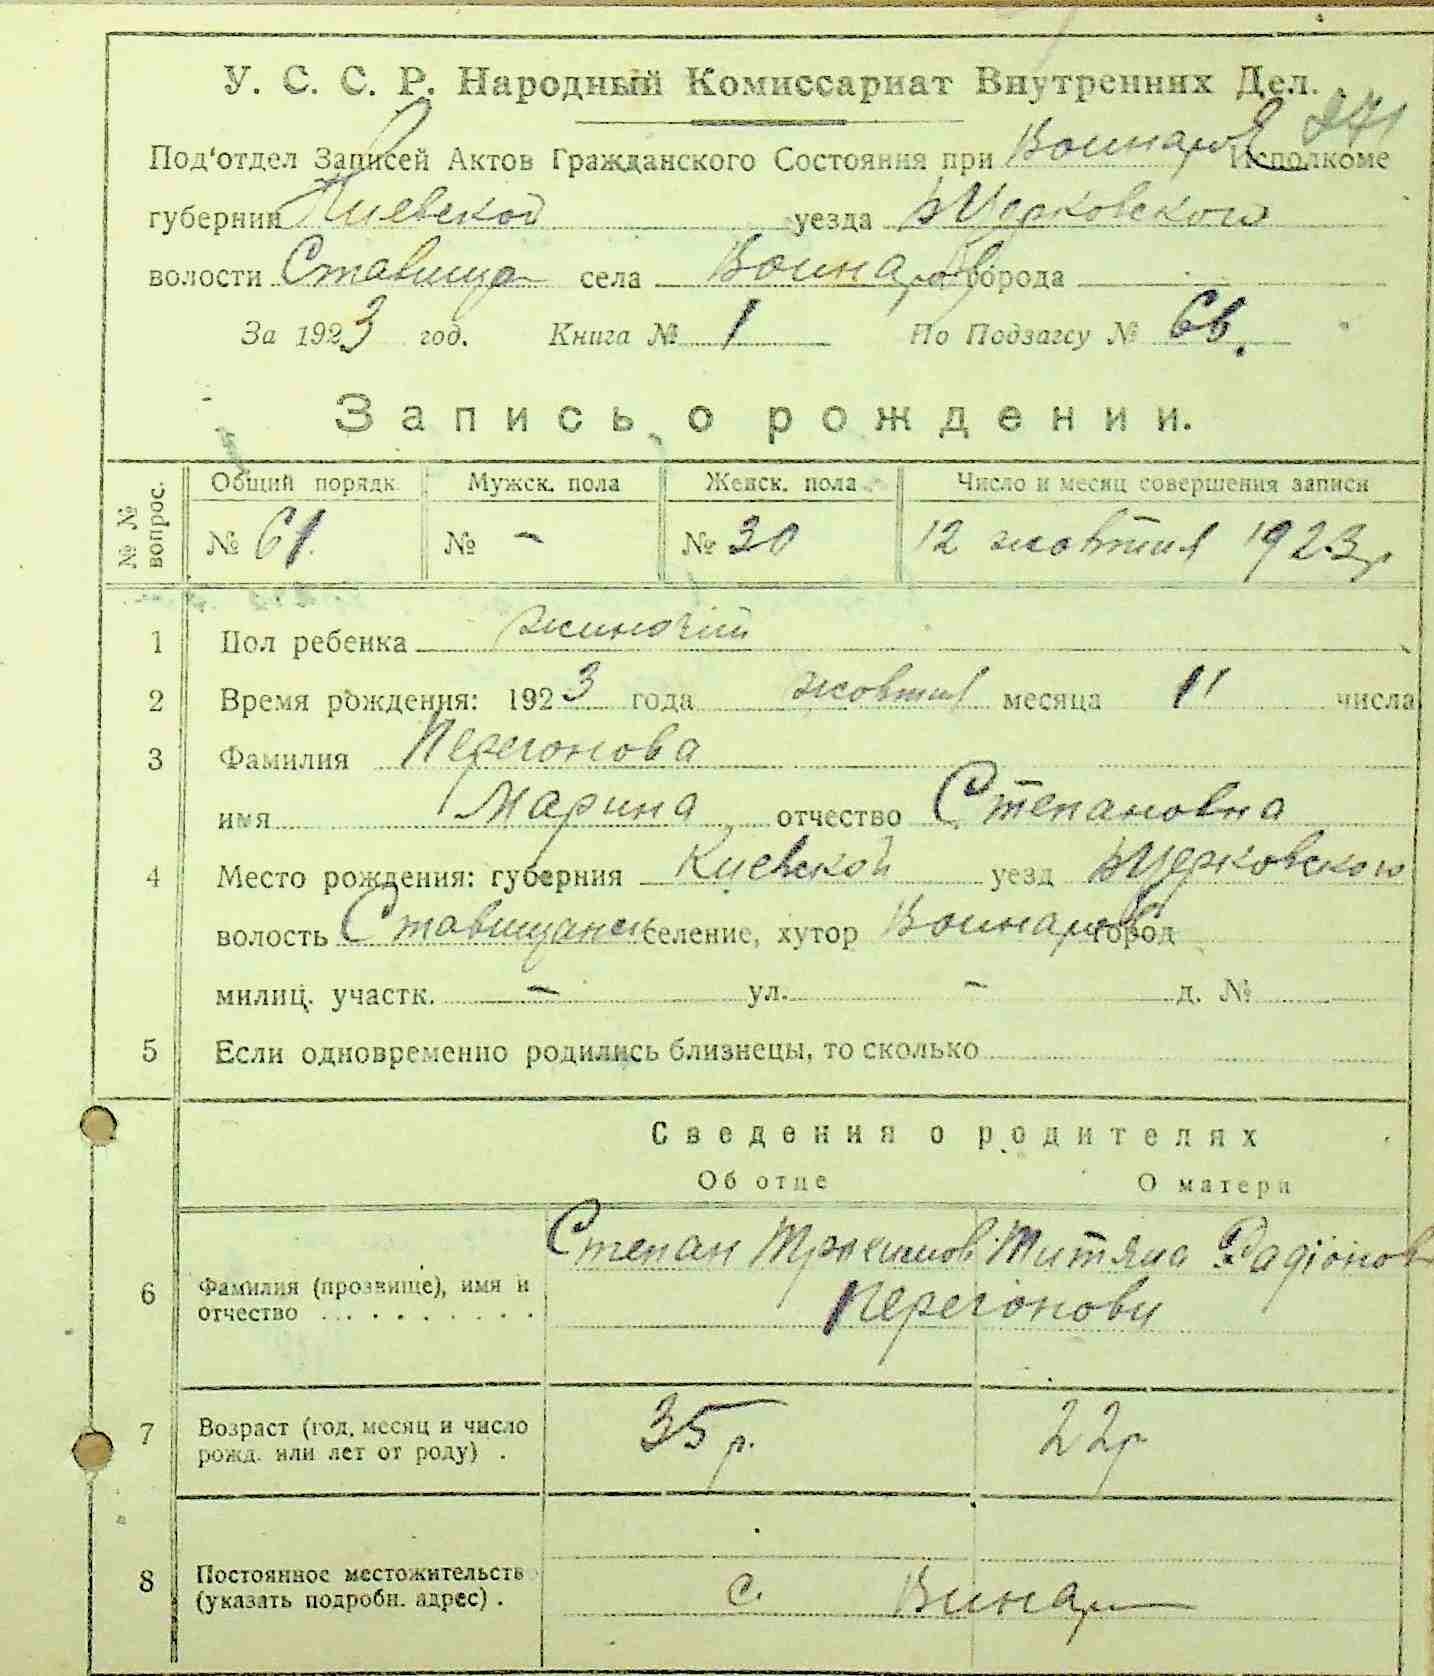 У. С. С. Р. Народный Комиссариат Внутренних Дел.
271
Под'отдел Записей Актов Гражданского Состояния при Воинаров Исполкоме
губернии Киевской уезда БЦерковского
волости Ставища села Воинаров города
За 1923 год. Книга № 1 По Подзагсу №
Запись о рождении.
№ № вопрос. Общий порядк. Мужск. пола Женск. пола Число и месяц совершения записи
№ 61. № - № 30 12 жовтня 1923 р
1 Пол ребенка жиночій
2 Время рождения: 1923 года жовтня месяца 11 числа
3 Фамилия Перегонова
имя Марина отчество Степановна
4 Место рождения: губерния Киевской уезд БЦерковского
волость Ставищанск селение, хутор Воинаров город
милиц. участк. - ул. - д. №
5 Если одновременно родились близнецы, то сколько
Сведения о родителях
Об отце О матери
Степан Трохимов Титяна Радіонов
6 Фамилия (прозвище), имя и
отчество . . . . . . . . . .
Перегонови
7 Возраст (год, месяц и число
рожд. или лет от роду) . 35 р. 22 р
8 Постоянное местожительств
(указать подробн. адрес) . с. Винар